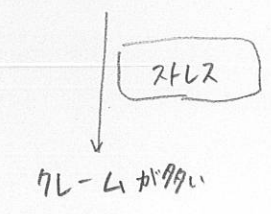 ストレス
クレームが多い